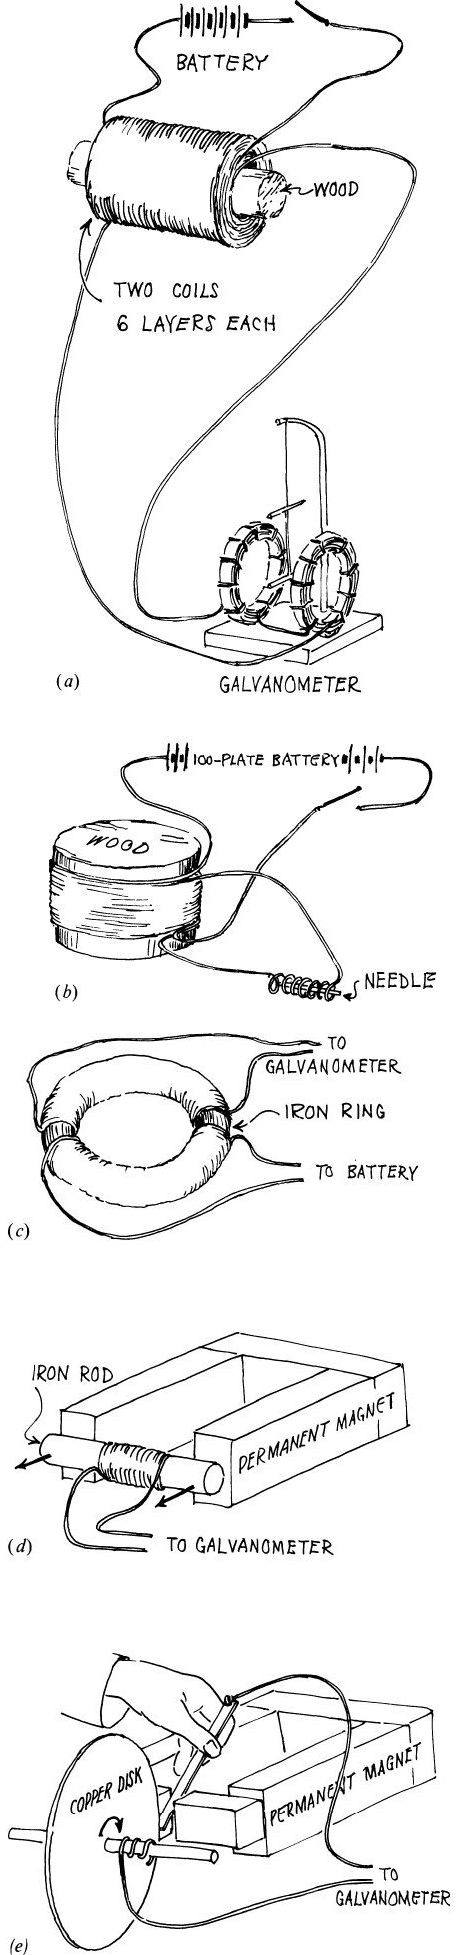 BATTERY
WOOD
TWO COILS
6 LAYERS EACH
(a)
GALVANOMETER
100-PLATE BATTERY
WOOD
(b)
NEEDLE
TO
GALVANOMETER
IRON RING
TO BATTERY
(c)
IRON ROD
PERMANENT MAGNET
(d)
TO GALVANOMETER
COPPER DISK
PERMANENT MAGNET
TO
GALVANOMETER
(e)